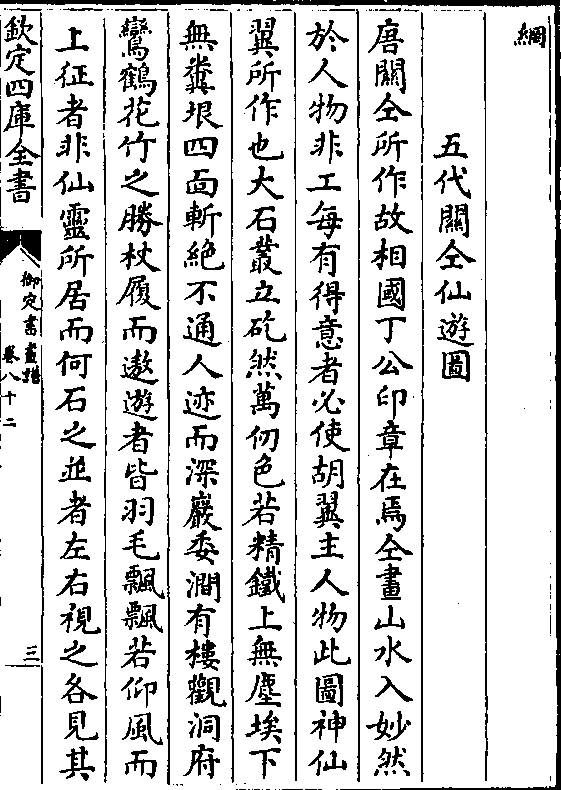 綱
五代關仝仙遊圖
唐關仝所作故相國丁公印章在焉仝畫山水入妙然
於人物非工每有得意者必使胡翼主人物此圖神仙
翼所作也大石叢立矻然萬仞色若精鐵上無塵埃下
無糞垠四面斬絶不通人迹而深巖委澗有樓觀洞府
鸞鶴花竹之勝杖履而遨遊者皆羽毛飄飄若仰風而
上征者非仙靈所居而何石之並者左右視之各見其
欽定四庫全書
御定書畫譜
卷八十二
三